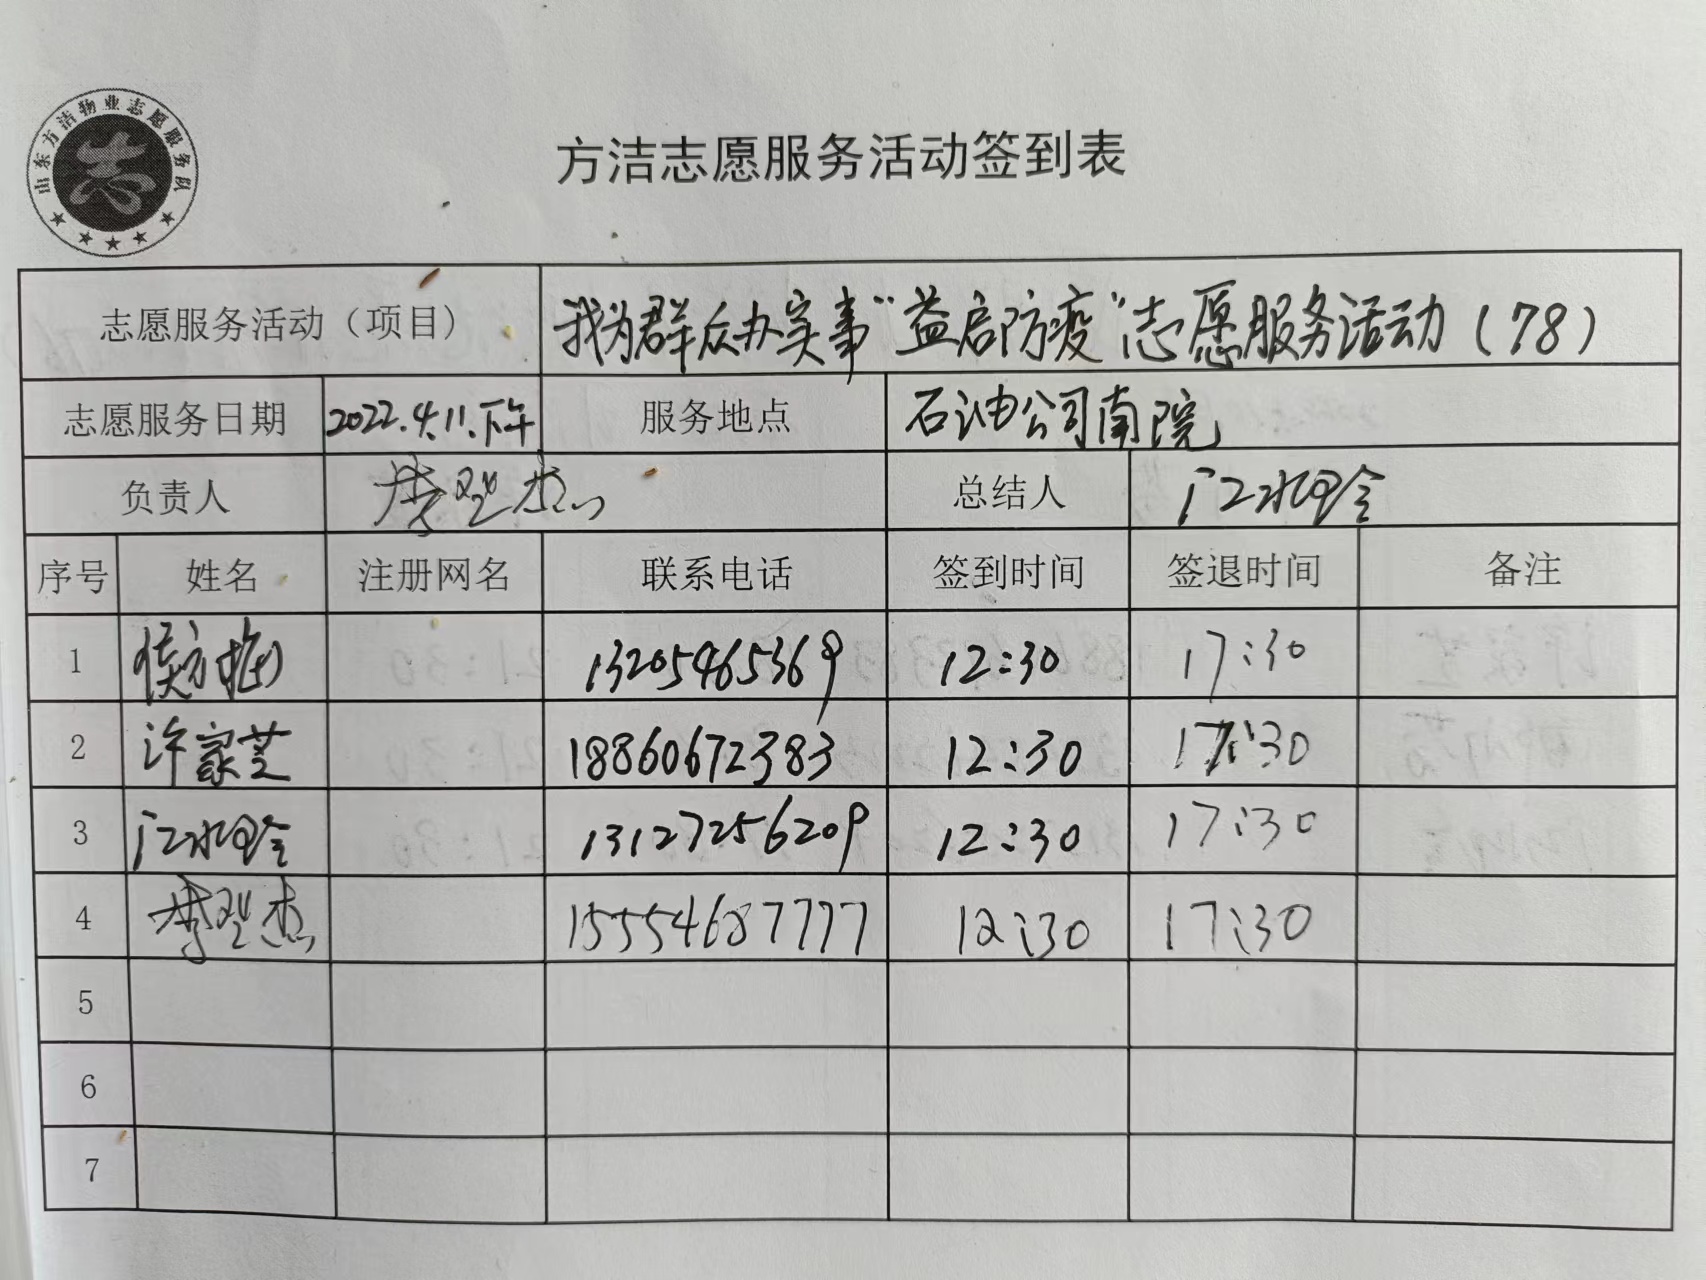 山东方洁物业志愿服务队
志
方洁志愿服务活动签到表
志愿服务活动（项目） 我为群众办实事“益启防疫”志愿服务活动（78）
志愿服务日期 2022.4.11.下午 服务地点 石油公司南院
负责人 总结人
序号 姓名 注册网名 联系电话 签到时间 签退时间 备注
1 侯方梅 13205465369 12:30 17:30
2 许家芝 18860672383 12:30 17:30
3 13127256209 12:30 17:30
4 15554687777 12:30 17:30
5
6
7